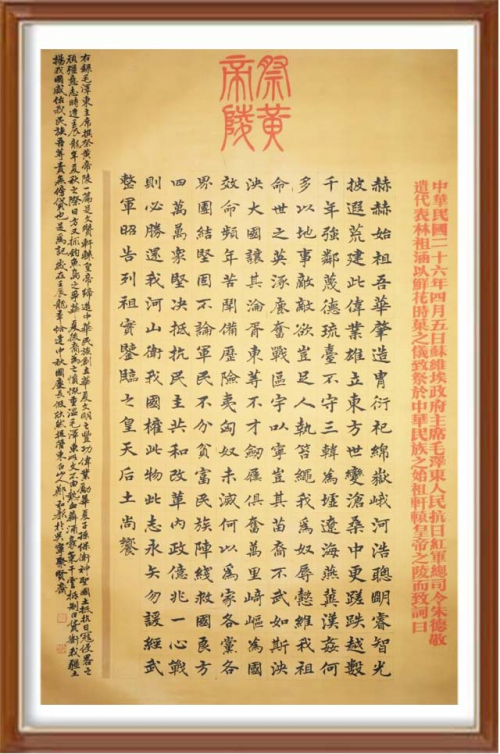 祭黃
帝陵
中華民國二十六年四月五日蘇維埃政府主席毛澤東人民抗日紅軍總司令朱德敬
遣代表林祖涵以鮮花時菓之儀致祭於中華民族之始祖軒轅皇帝之陵而致詞曰
赫赫始祖吾華肇造冑衍祀綿嶽峨河浩聰明睿智光
披遐荒建此偉業雄立東方世變滄桑中更蹉跌越數
千年強鄰蔑德琉臺不守三韓為墟遼海燕冀漢奸何
多以地事敵敵欲豈足人執笞繩我為奴辱懿維我祖
命世之英涿鹿奮戰區宇以寧豈其苗裔不武如斯泱
泱大國讓其淪胥東等不才劍屨俱奮萬里崎嶇為國
效命頻年苦鬥備歷險夷匈奴未滅何以為家各黨各
界團結堅固不論軍民不分貧富民族陣綫救國良方
四萬萬眾堅決抵抗民主共和改革內政億兆一心戰
則必勝還我河山衛我國權此物此志永矢勿諼經武
整軍昭告列祖實鑒臨之皇天后土尚饗
右錄毛澤東主席撰祭黃帝陵一篇